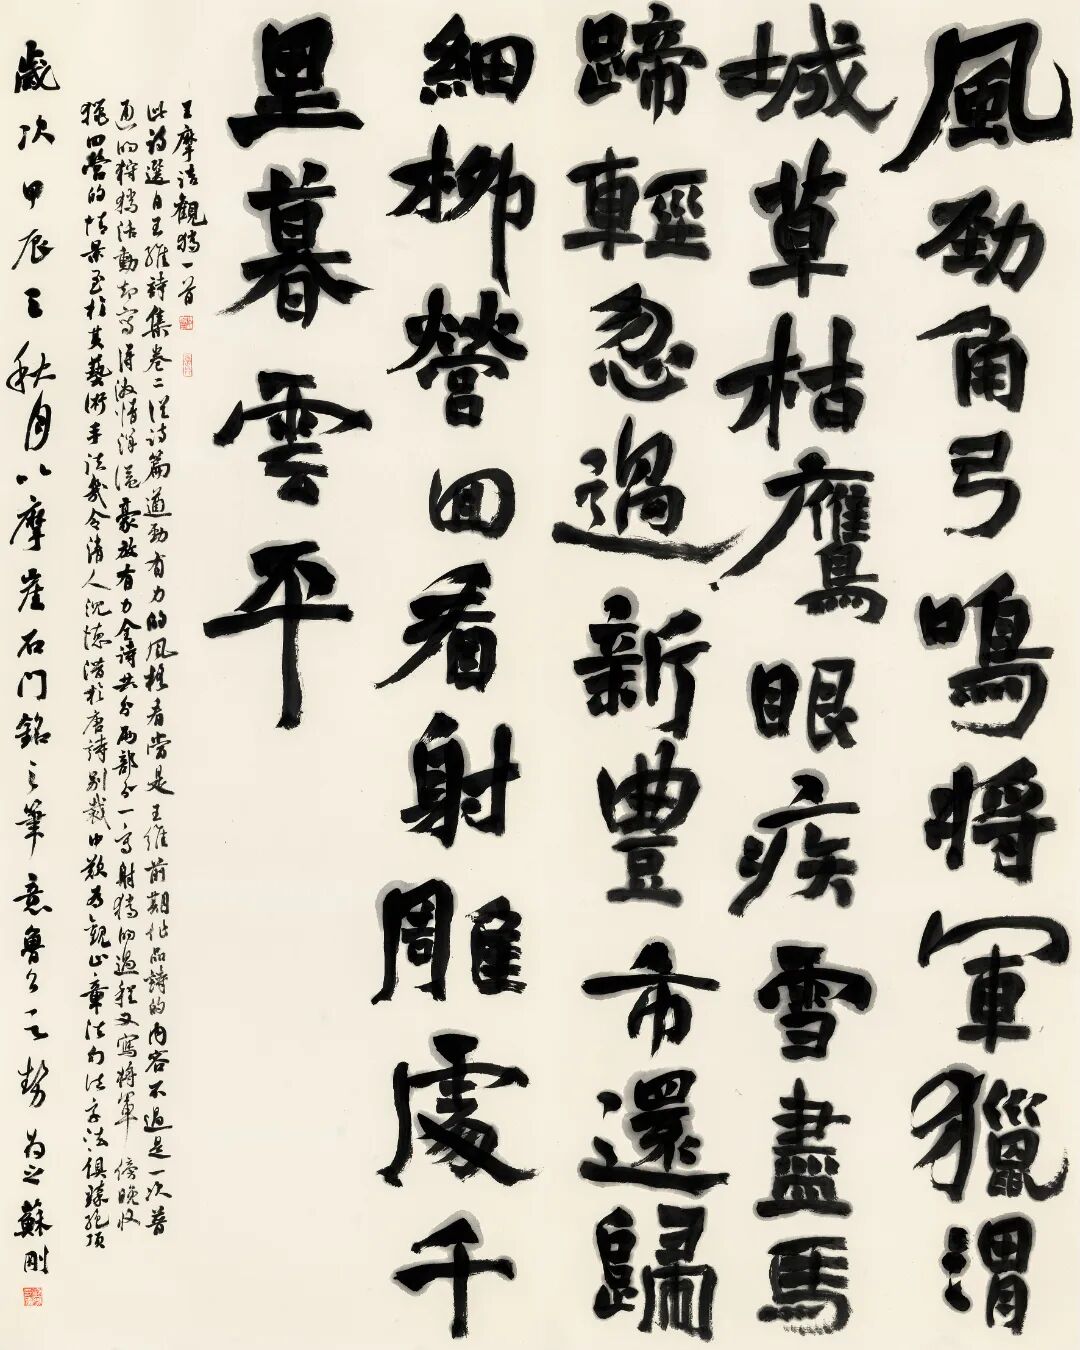 風勁角弓鳴將軍獵渭
城草枯鷹眼疾雪盡馬
蹄輕忽過新豐市還歸
細柳營回看射雕處千
里暮雲平
王摩詰觀獵一首
此詩選自王維詩集卷二從詩篇遒勁有力的風格看當是王維前期作品詩的內容不過是一次普
通的狩獵活動却寫得激情洋溢豪放有力全詩共分兩部分一寫射獵的過程又寫將軍傍晚收
獵回營的情景至於其藝術手法幾令清人沈德潛於唐詩別裁中歎為觀止章法句法字法俱臻絕頂
歲次甲辰之秋月以摩崖石門銘之筆意魯公之勢為之蘇剛